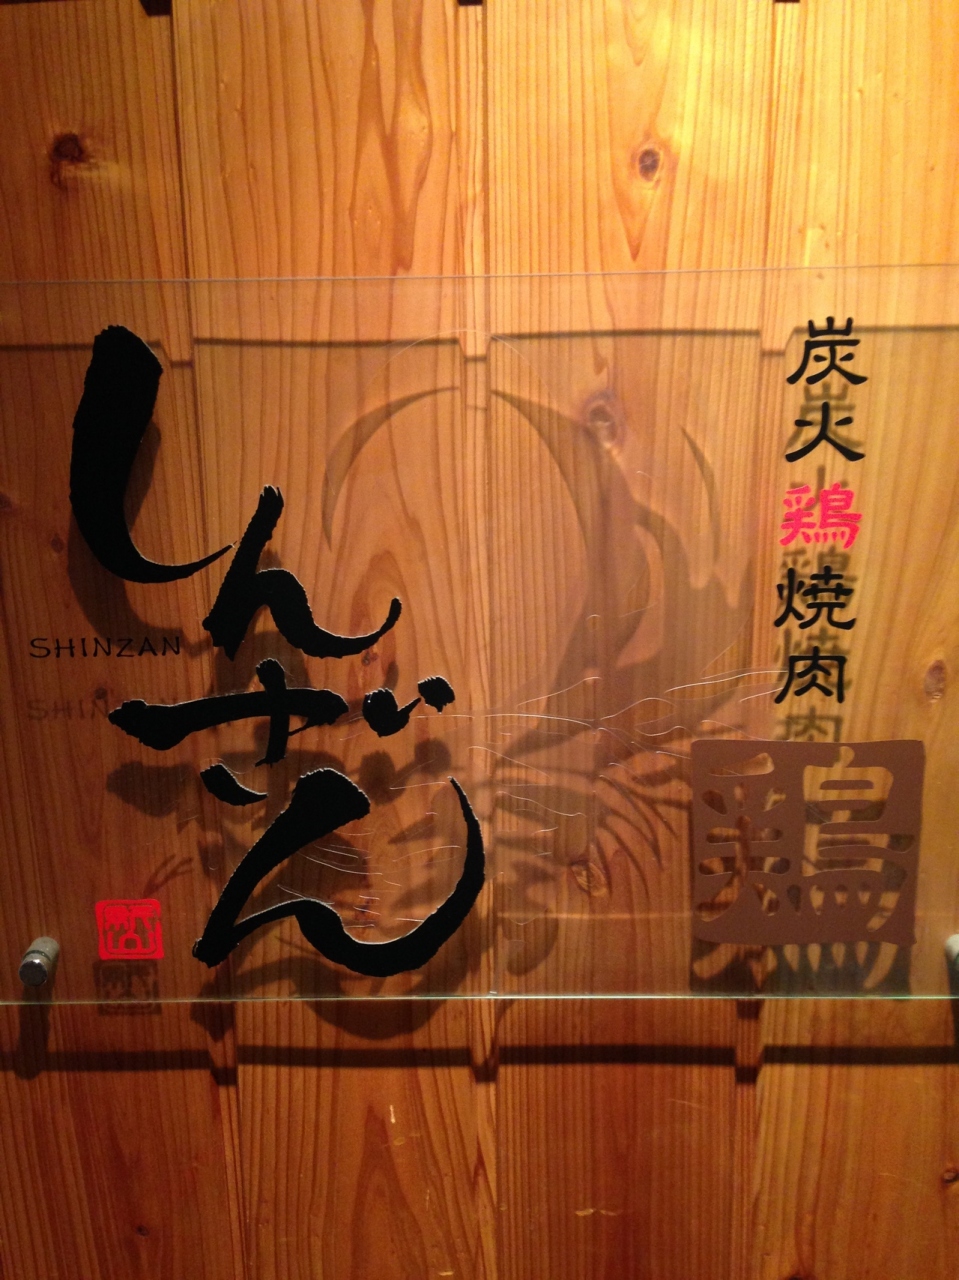 炭火鶏焼肉
しんざん
SHINZAN
鶏